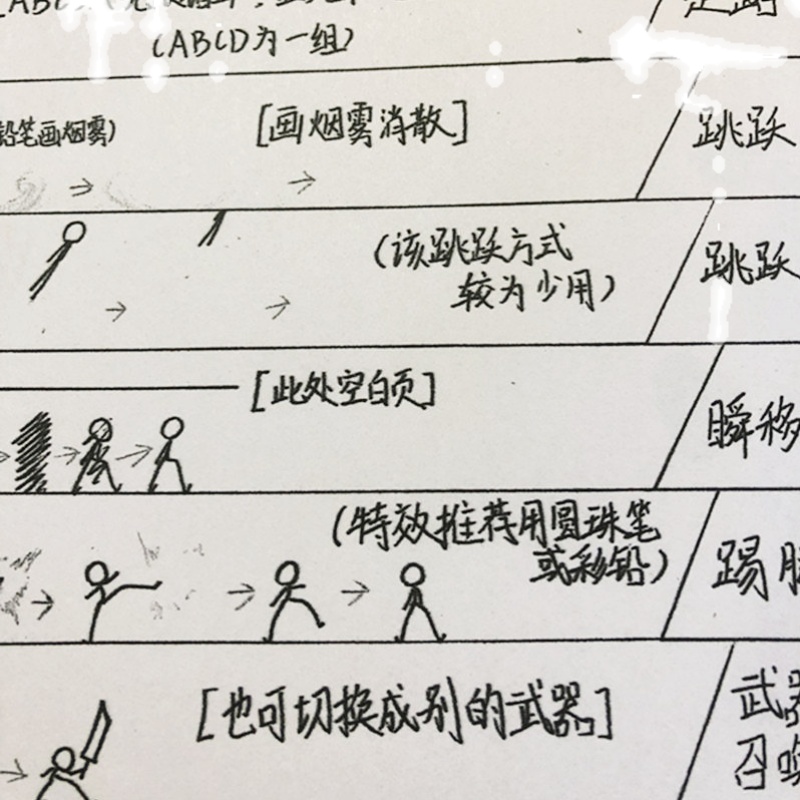 (ABCD为一组)
铅笔画烟雾)
[画烟雾消散]
跳跃
(该跳跃方式
较为少用)
跳跃
[此处空白页]
瞬移
(特效推荐用圆珠笔
或彩铅)
踢
[也可切换成别的武器]
武器
召唤